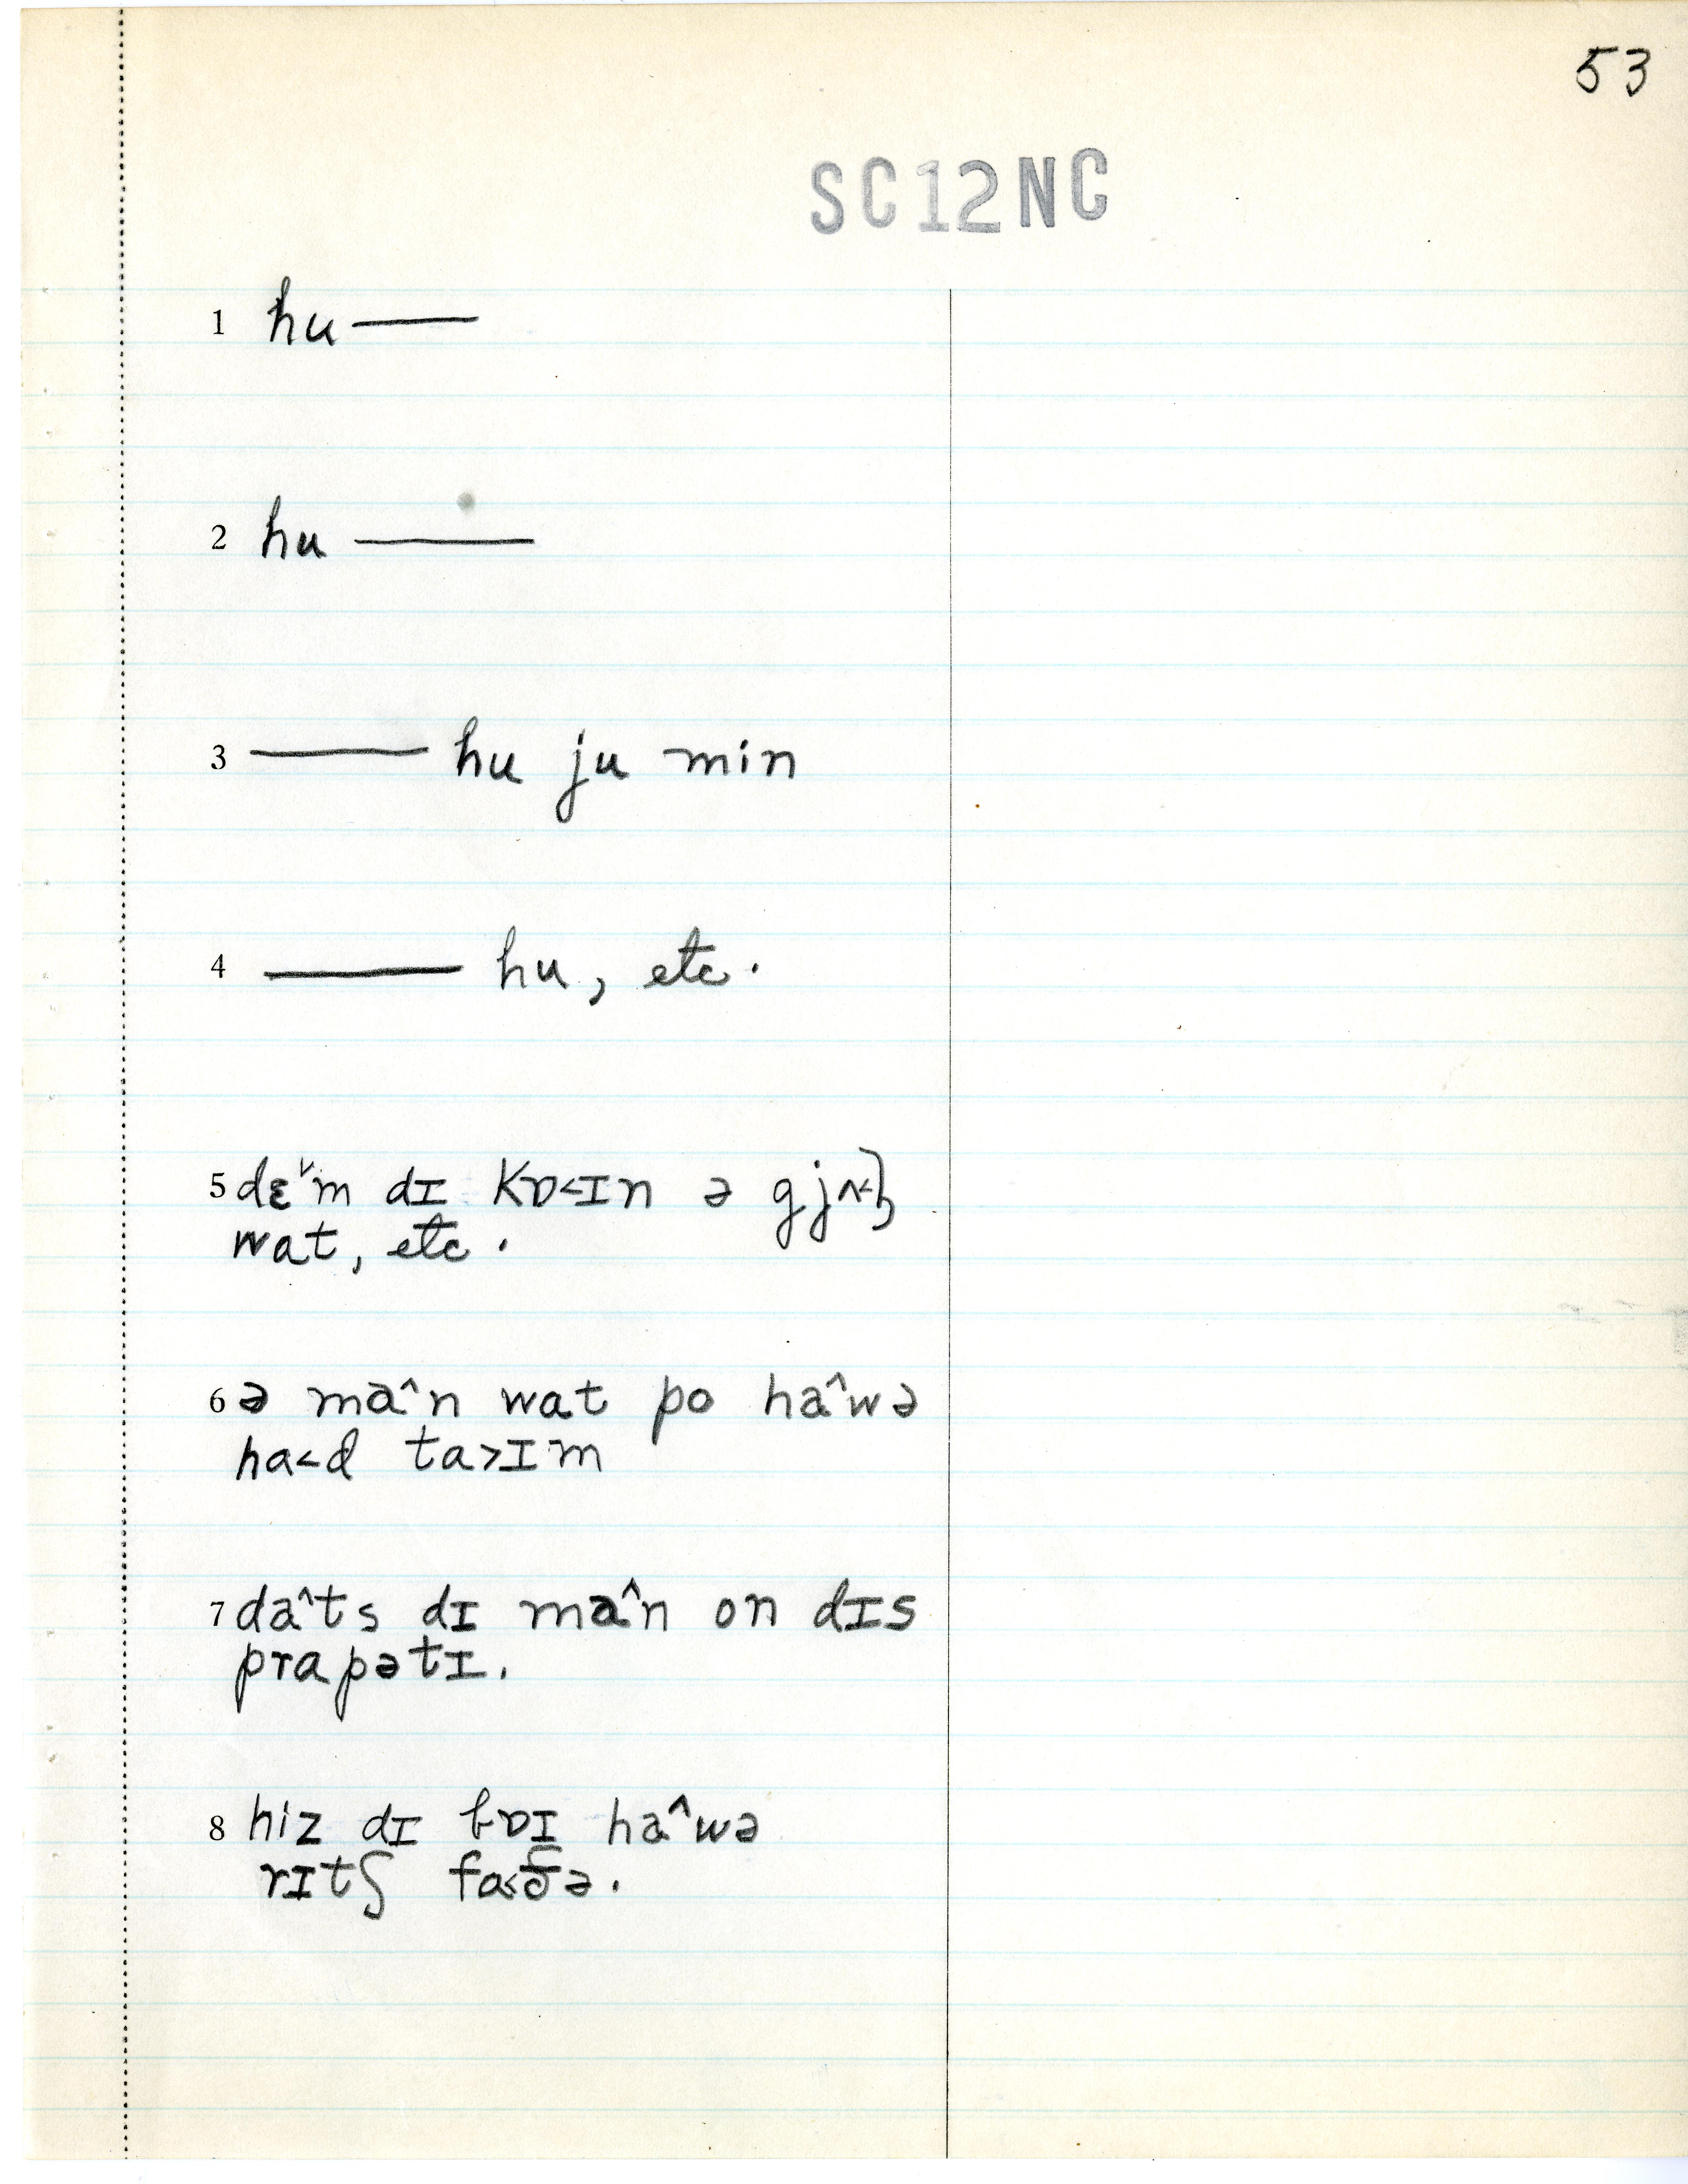 53
SC12NC
1 hu——
2 hu ——
3 —— hu ju min
4 —— hu, etc.
5 dɛ˅m dɪ kɒ<ɪn ə
wat, etc.
6 ə ma^n wat po ha^wə
ha<d ta>ɪm
7 da^ts dɪ ma^n on dɪs
prapətɪ.
8 hiz dɪ ha^wə
rɪtʃ